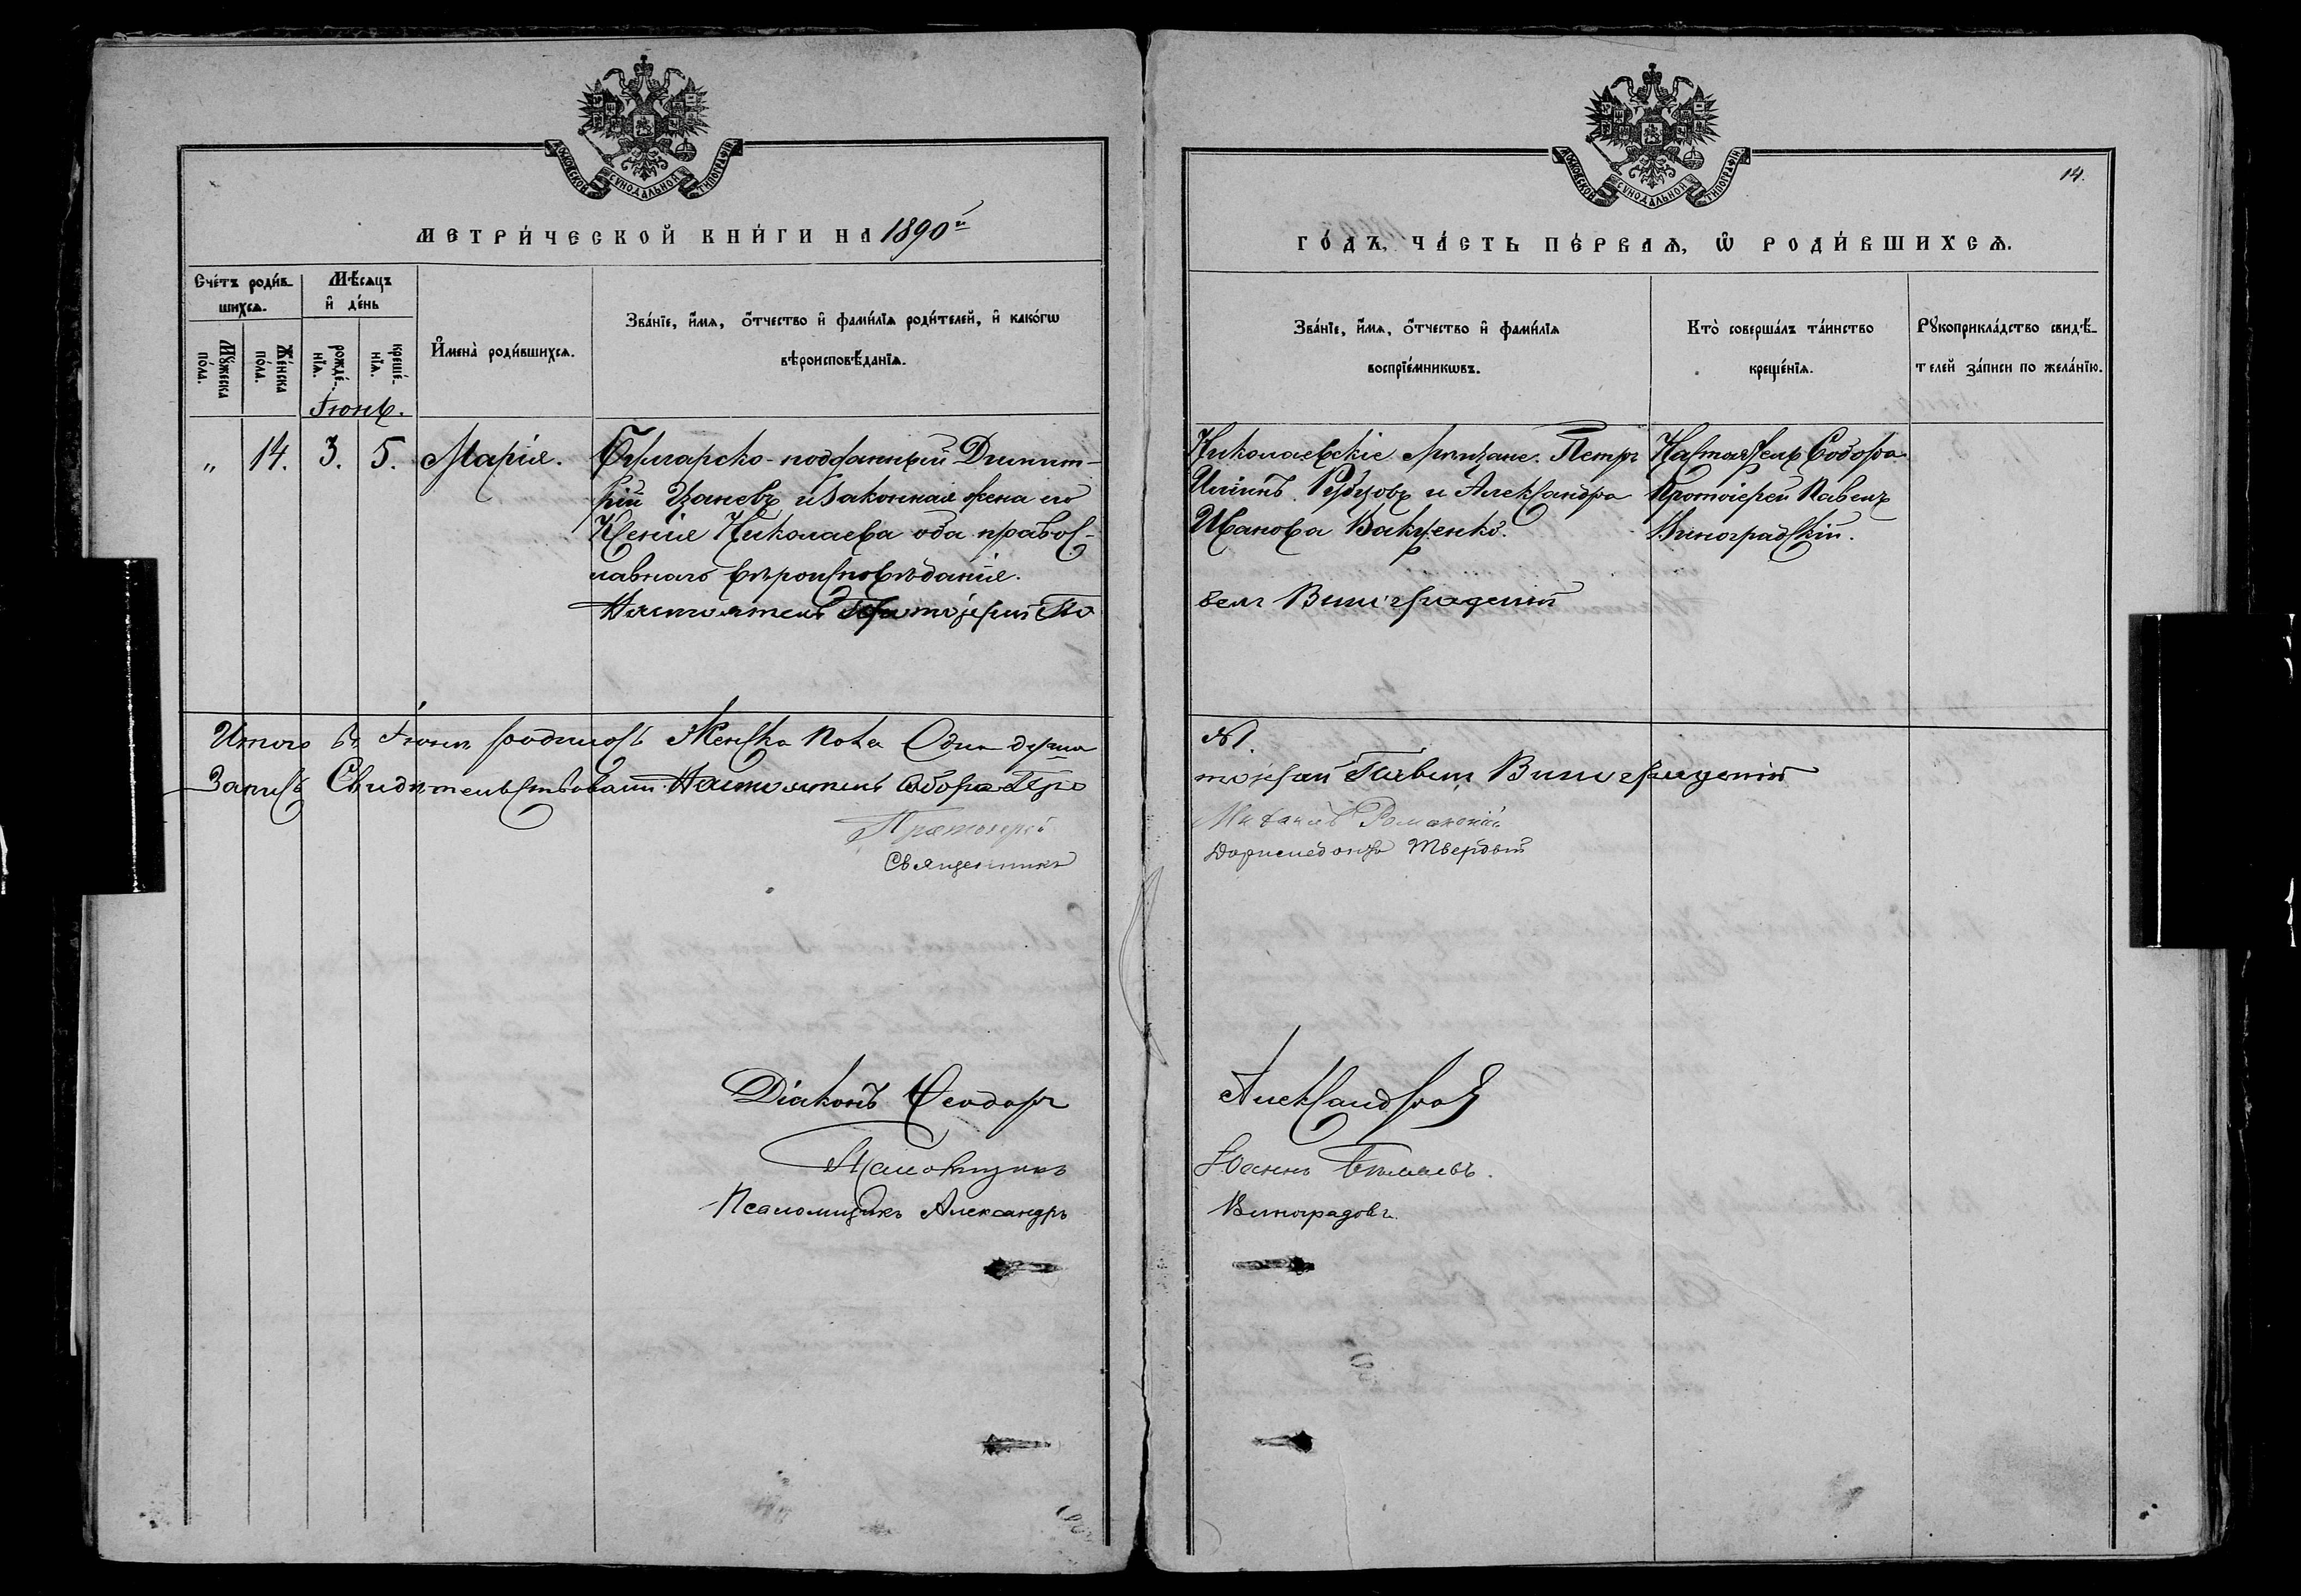 МОСКОВСКОЙ СѴНОДАЛЬНОЙ ТИПОГРАФІИ
МЕТРИ́ЧЕСКОЙ КНИ́ГИ НА 1890й
Сче́тъ роди́в-
шихсѧ.
Мѣ́сѧцъ
и҆ де́нь
Мꙋ́жеска
по́ла.
Же́нска
по́ла.
рожде́-
нїѧ.
креще́-
нїѧ.
И҆мена̀ роди́вшихсѧ.
Зва́нїе, и҆́мѧ, ѻ҆́тчество и҆ фами́лїѧ роди́телей, и҆ како́гѡ
вѣроисповѣ́данїѧ.
Іюнь.
„ 14. 3. 5. Марія.
Болгарско-подданный Димит-
рій Цаневъ и законная жена его
Ксенія Николаева оба правос-
лавнаго вѣроисповѣданія.
Настоятель Протоіерей Па
Итого въ Іюнѣ родилось Женска пола Одна душа
Запись Свидѣтельствовали Настоятель Собора Про
Протоіерей
Священникъ
Діаконъ Ѳеодоръ
Псаломщикъ
Псаломщикъ Александръ
МОСКОВСКОЙ СѴНОДАЛЬНОЙ ТИПОГРАФІИ
14.
ГО́ДЪ, ЧА́СТЬ ПЕ́РВАѦ, Ѽ РОДИ́ВШИХСѦ.
Зва́нїе, и҆́мѧ, ѻ҆́тчество и҆ фами́лїѧ
воспрїе́мникѡвъ.
Кто̀ соверша́лъ та́инство
креще́нїѧ.
Рꙋкоприкла́дство свидѣ́-
телей за́писи по жела́нїю.
Николаевскіе мѣщане. Петръ
Иліинъ Рубцовъ и Александра
Иванова Вакуленко.
Настоятель Собора
Протоіерей Павелъ
Виноградскій.
велъ Виноградскій
№ 1.
тоіерей Павелъ Виноградскій
Михаилъ Романскій
Твердый
Александровъ
Іоаннъ
Виноградовъ.